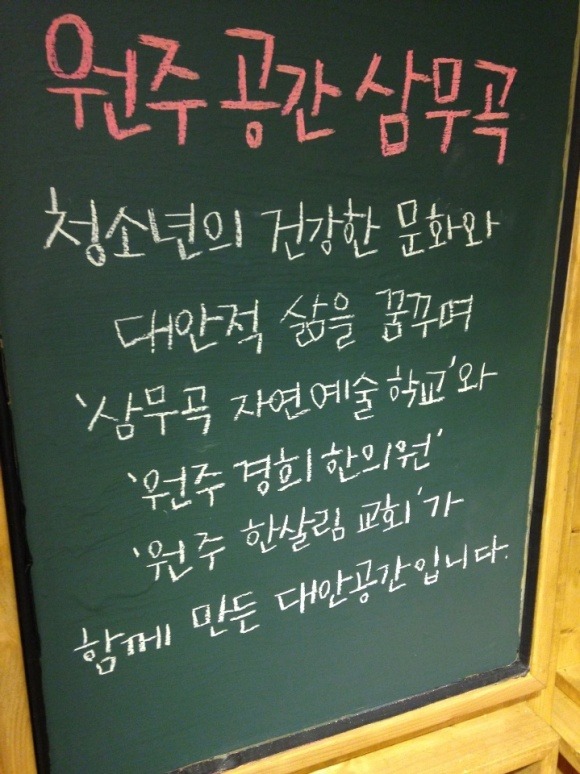 원주 공간 삼무곡
청소년의 건강한 문화와
대안적 삶을 꿈꾸며
'삼무곡 자연예술학교'와
'원주 경희한의원'
'원주 한살림 교회'가
함께 만든 대안공간입니다.